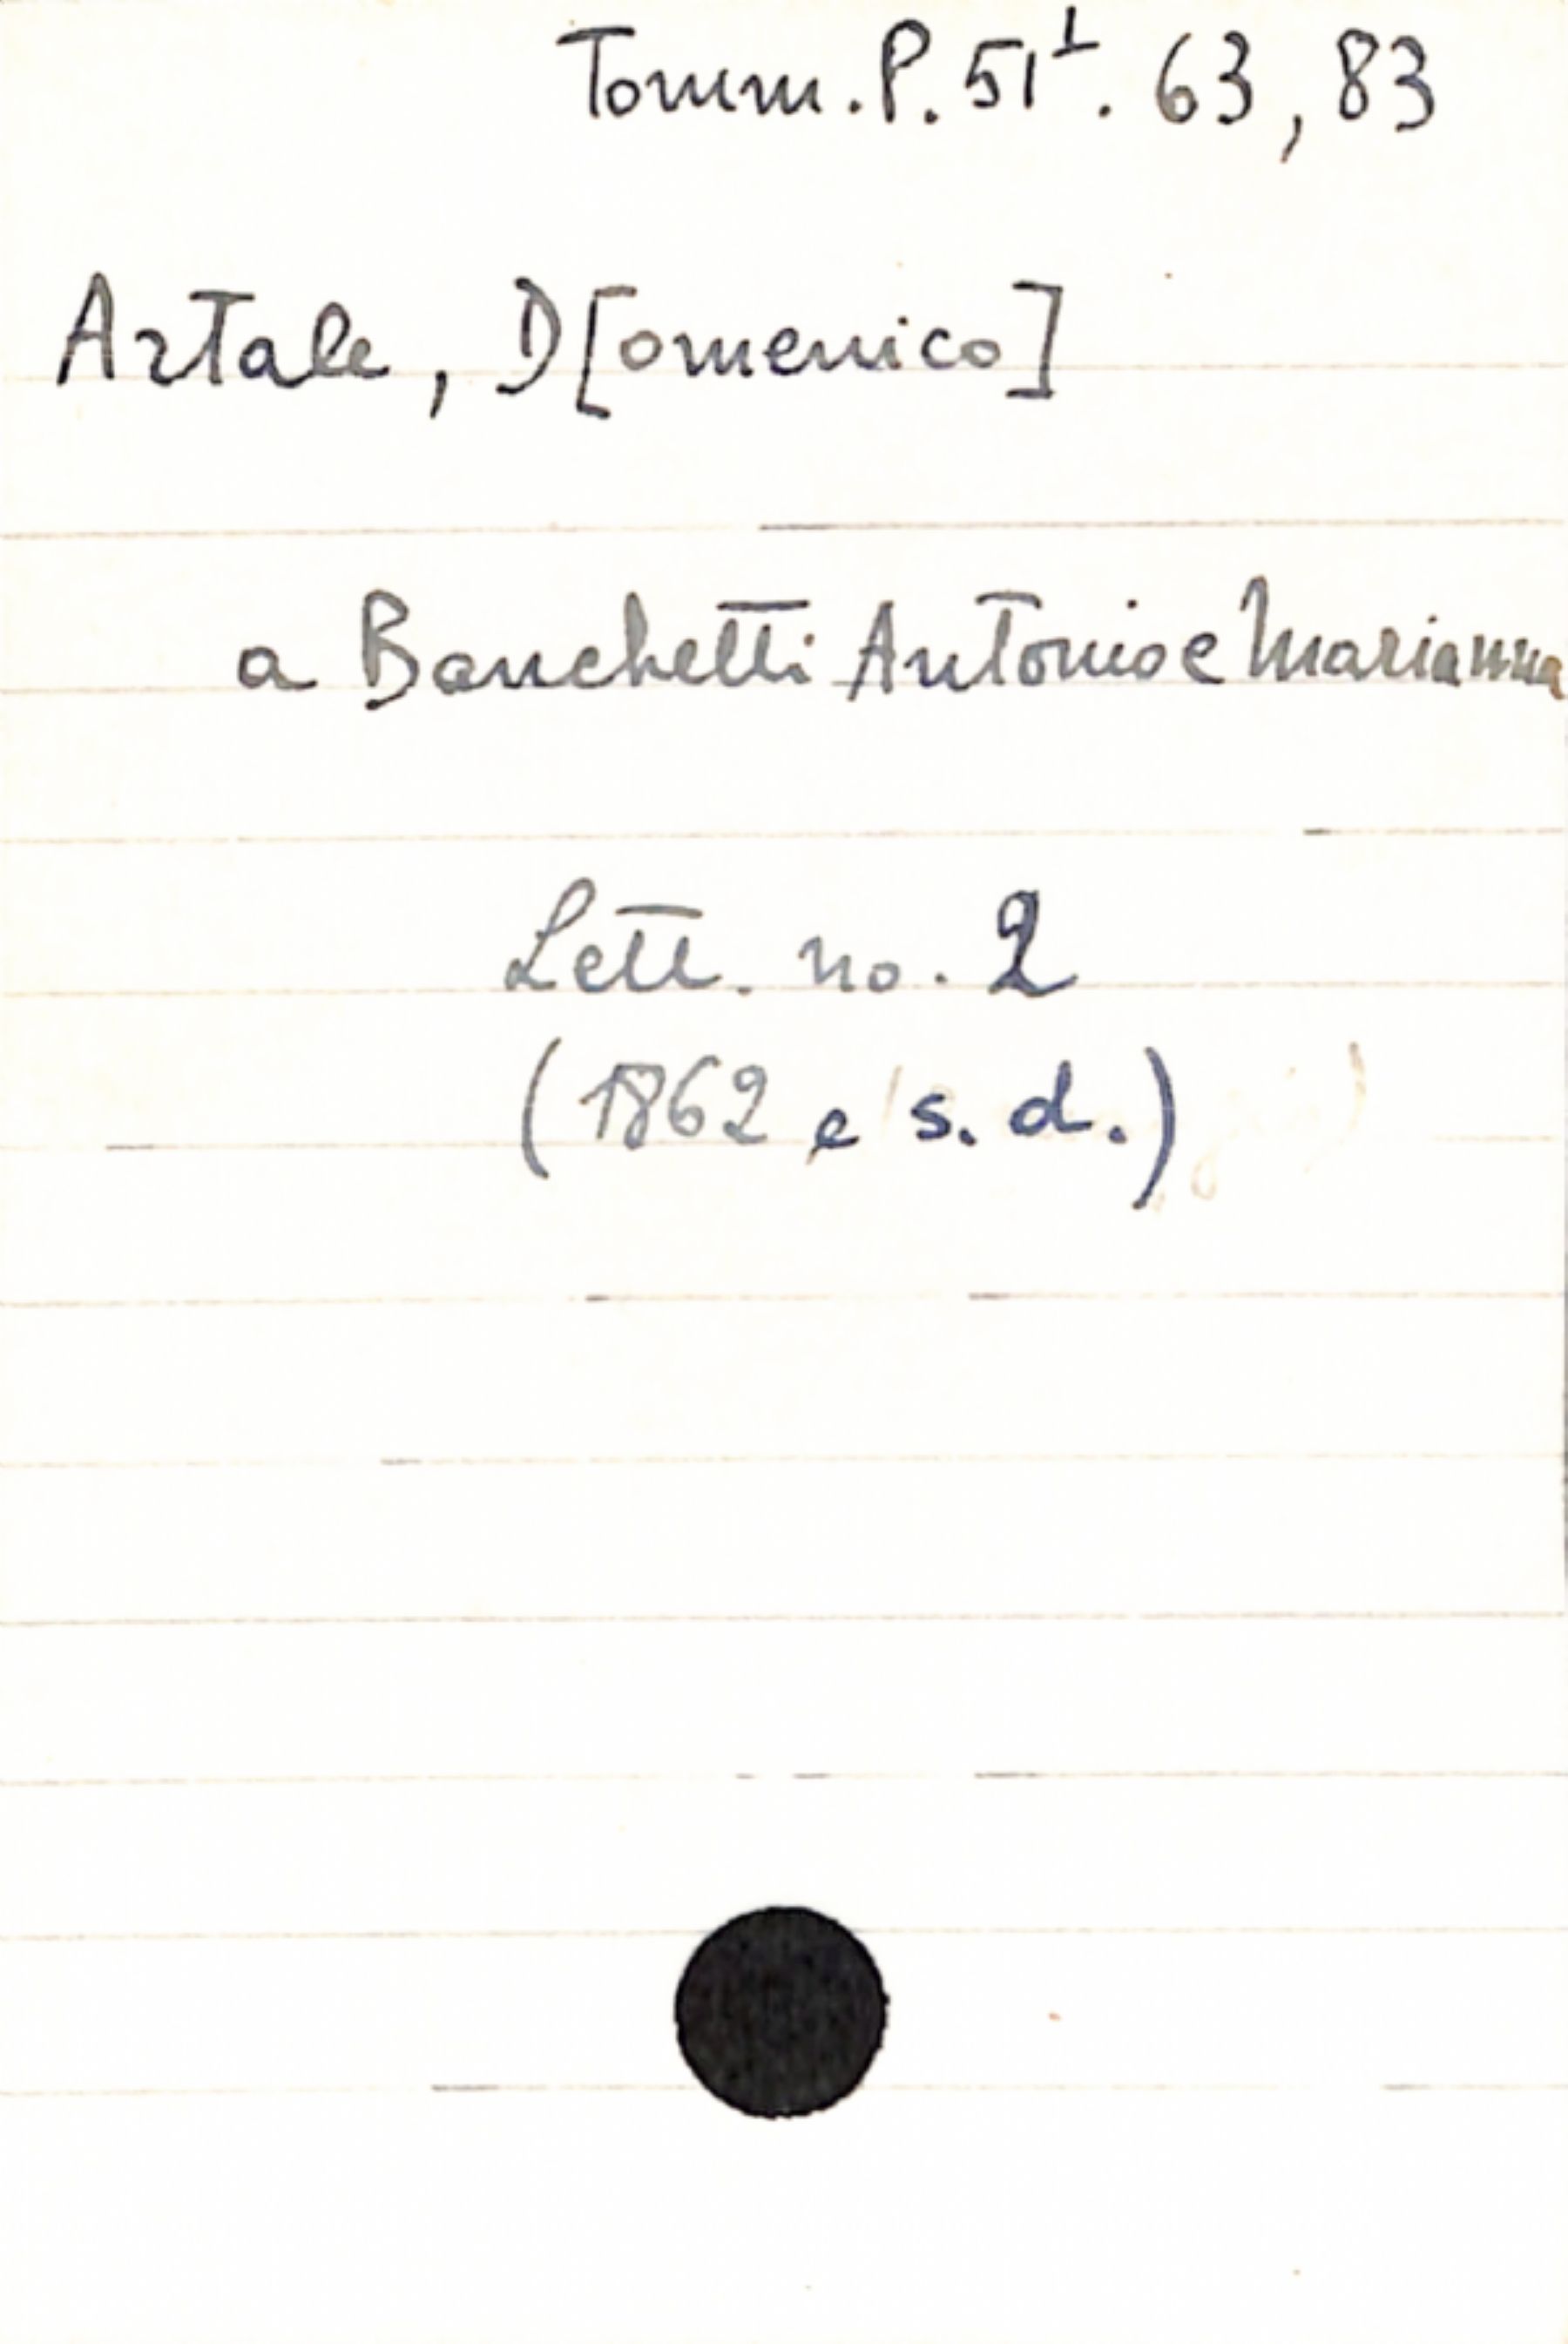 Tomm. P. 51¹. 63, 83
Artale, D[omenico]
a Banchetti Antonio e Marianna
Lett. no. 2
(1862 e s. d.)